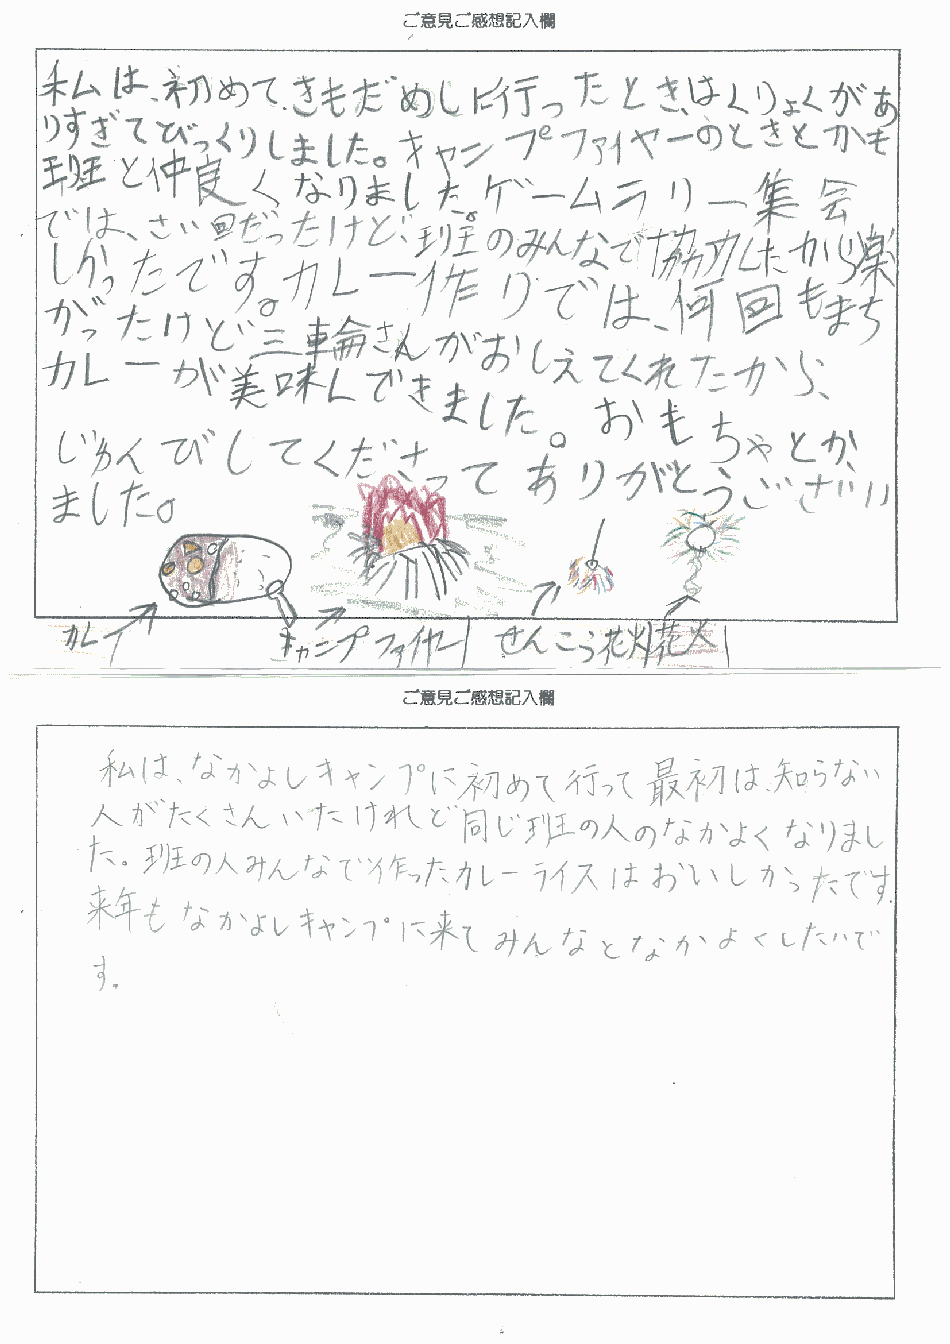 ご意見ご感想記入欄
私は、初めて、きもだめしに行ったときは、はくりょくがあ
りすぎてびっくりしました。キャンプファイヤーのときとかも
班と仲良くなりました。ゲームラリー集会
では、さい回だったけど、班のみんなで協力したから楽
しかったです。カレー作りでは、何回もまち
がったけど三輪さんがおしえてくれたから、
カレーが美味しくできました。おもちゃとか、
じゅんびしてくださってありがとうござい
ました。
カレー
キャンプファイヤー
せんこう花火
花火
ご意見ご感想記入欄
私は、なかよしキャンプに初めて行って最初は、知らない
人がたくさんいたけれど同じ班の人のなかよくなりまし
た。班の人みんなで作ったカレーライスはおいしかったです。
来年もなかよしキャンプに来てみんなとなかよくしたいで
す。